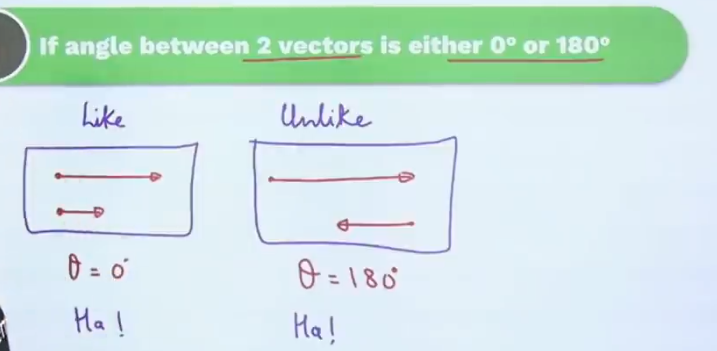 If angle between 2 vectors is either 0° or 180°
Like
Unlike
θ = 0°
θ = 180°
Ha!
Ha!